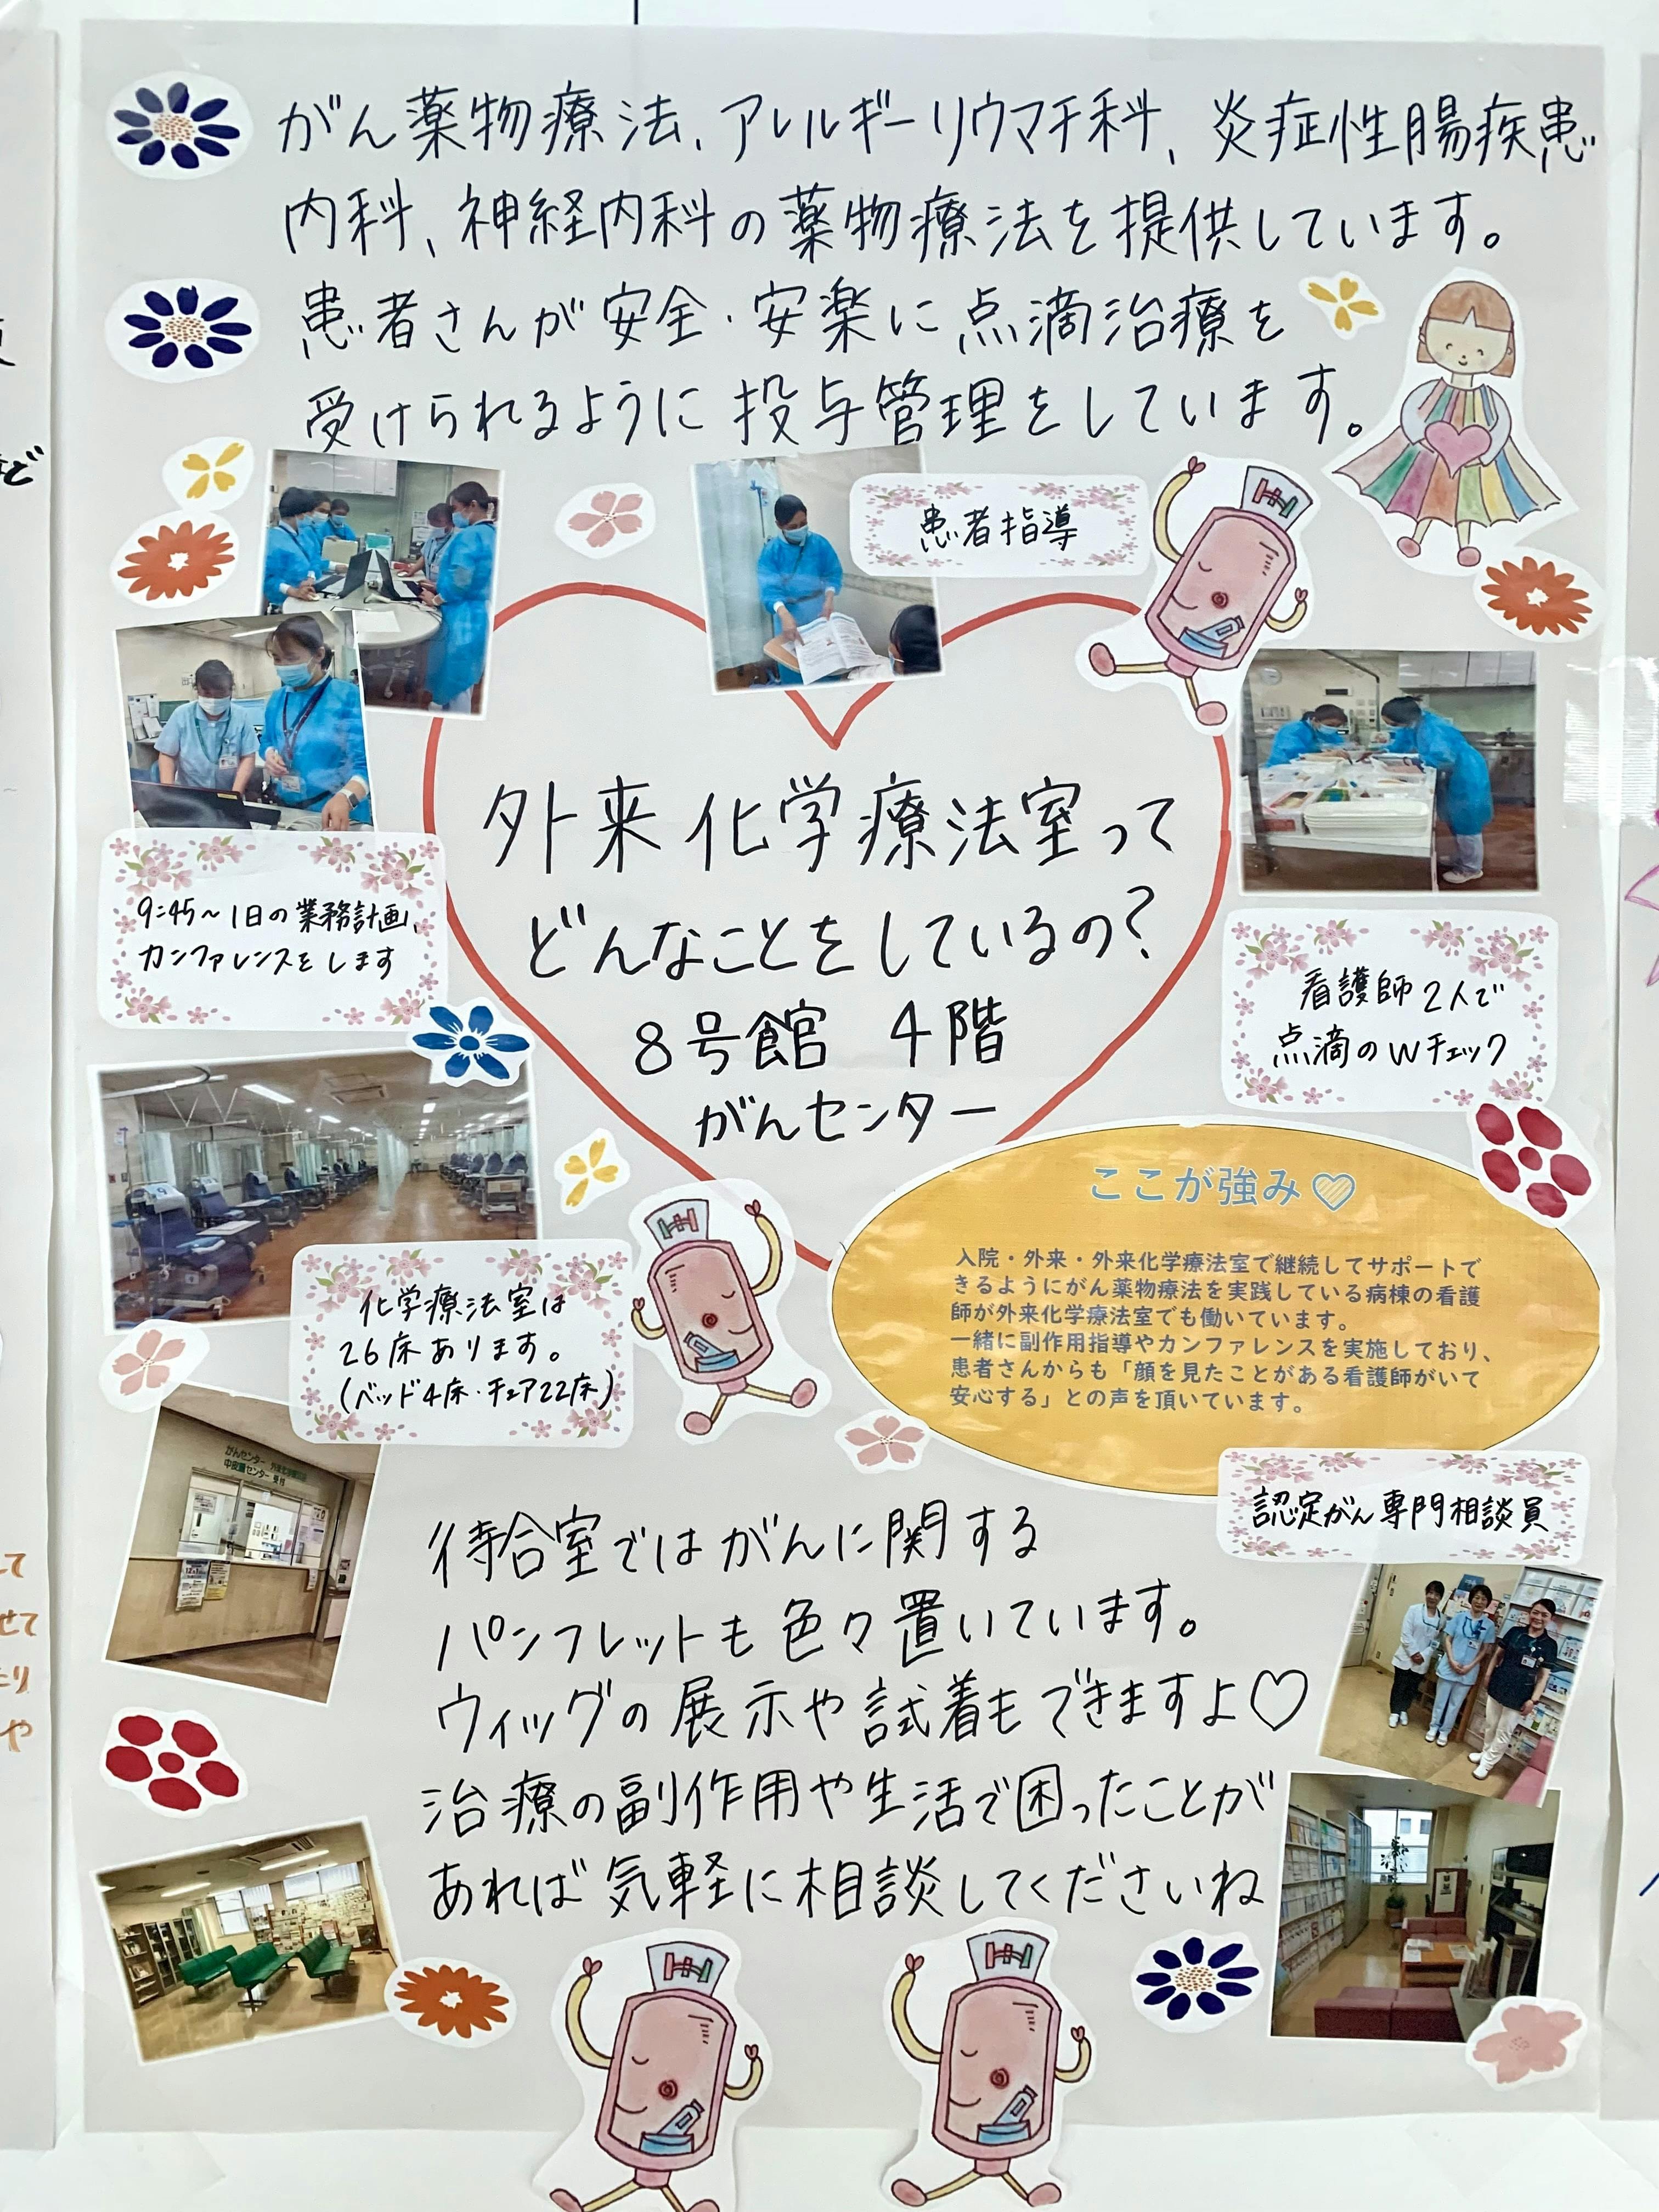 がん薬物療法、アレルギーリウマチ科、炎症性腸疾患
内科、神経内科の薬物療法を提供しています。
患者さんが安全・安楽に点滴治療を
受けられるように投与管理をしています。
患者指導
外来化学療法室って
どんなことをしているの?
8号館 4階
がんセンター
9:45〜1日の業務計画、
カンファレンスをします
看護師2人で
点滴のWチェック
化学療法室は
26床あります。
(ベッド4床・チェア22床)
ここが強み♡
入院・外来・外来化学療法室で継続してサポートで
きるようにがん薬物療法を実践している病棟の看護
師が外来化学療法室でも働いています。
一緒に副作用指導やカンファレンスを実施しており、
患者さんからも「顔を見たことがある看護師がいて
安心する」との声を頂いています。
認定がん専門相談員
がんセンター
中央採血センター 受付
待合室ではがんに関する
パンフレットも色々置いています。
ウィッグの展示や試着もできますよ♡
治療の副作用や生活で困ったことが
あれば気軽に相談してくださいね